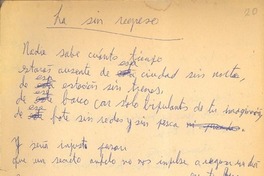 20
ha sin regreso
Nadie sabe cuánto tiempo
estarás ausente de esa ciudad sin norte,
de esa estación sin trenes,
de este barco con solo tripulantes de tu imaginación,
de ese bote sin redes y sin pesca
Y sería injusto pensar
que un secreto anhelo no nos impulsa a